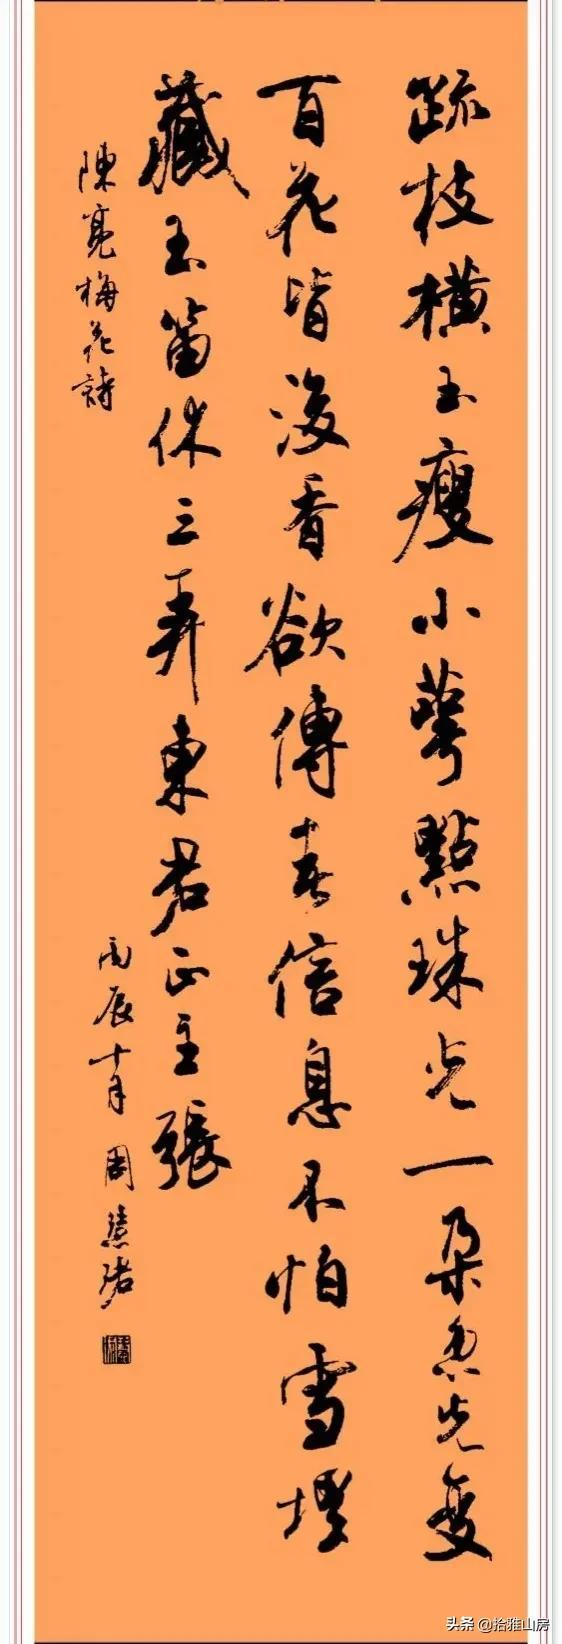 疏枝橫玉瘦小萼點珠光一朵忽先變
百花皆後香欲傳春信息不怕雪埋
藏玉笛休三弄東君正主張
陳亮梅花詩
丙辰十月周慧珺
头条 @拾雅山房